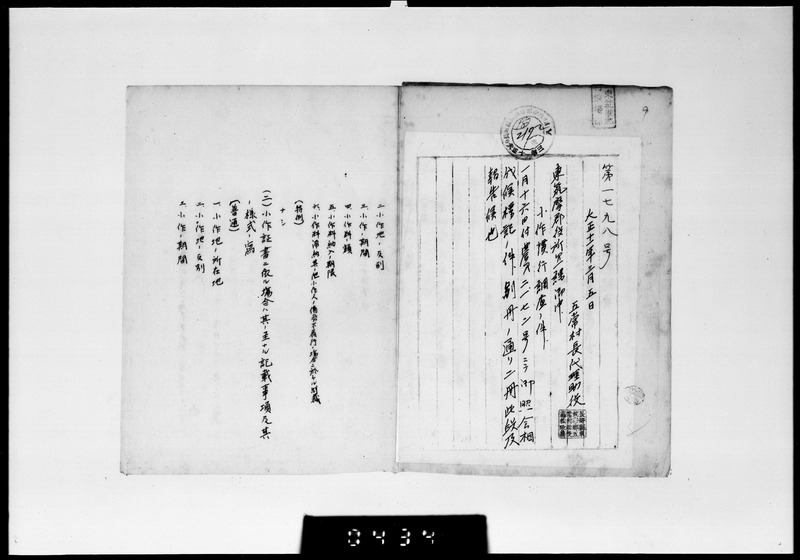 第一七九八号
大正十一年二月五日
五常村長代理助役
東筑摩郡役所 御中
小作慣行調査ノ件
一月十六日付農第二、七二号ヲ以テ御照会相
成候標記ノ件別冊ノ通リ二冊此段及
報告候也
二、小作地ノ反別
三、小作ノ期間
四、小作料ノ額
五、小作料納入ノ期限
六、小作料滞納其ノ他小作人ノ債務不履行ノ場合ニ於ケル制裁
(特例)
ナシ
(二)小作証書ニ依ル場合ハ其ノ主ナル記載事項及其
ノ様式ノ寫
(普通)
一、小作地ノ所在地
二、小作地ノ反別
三、小作ノ期間
0434